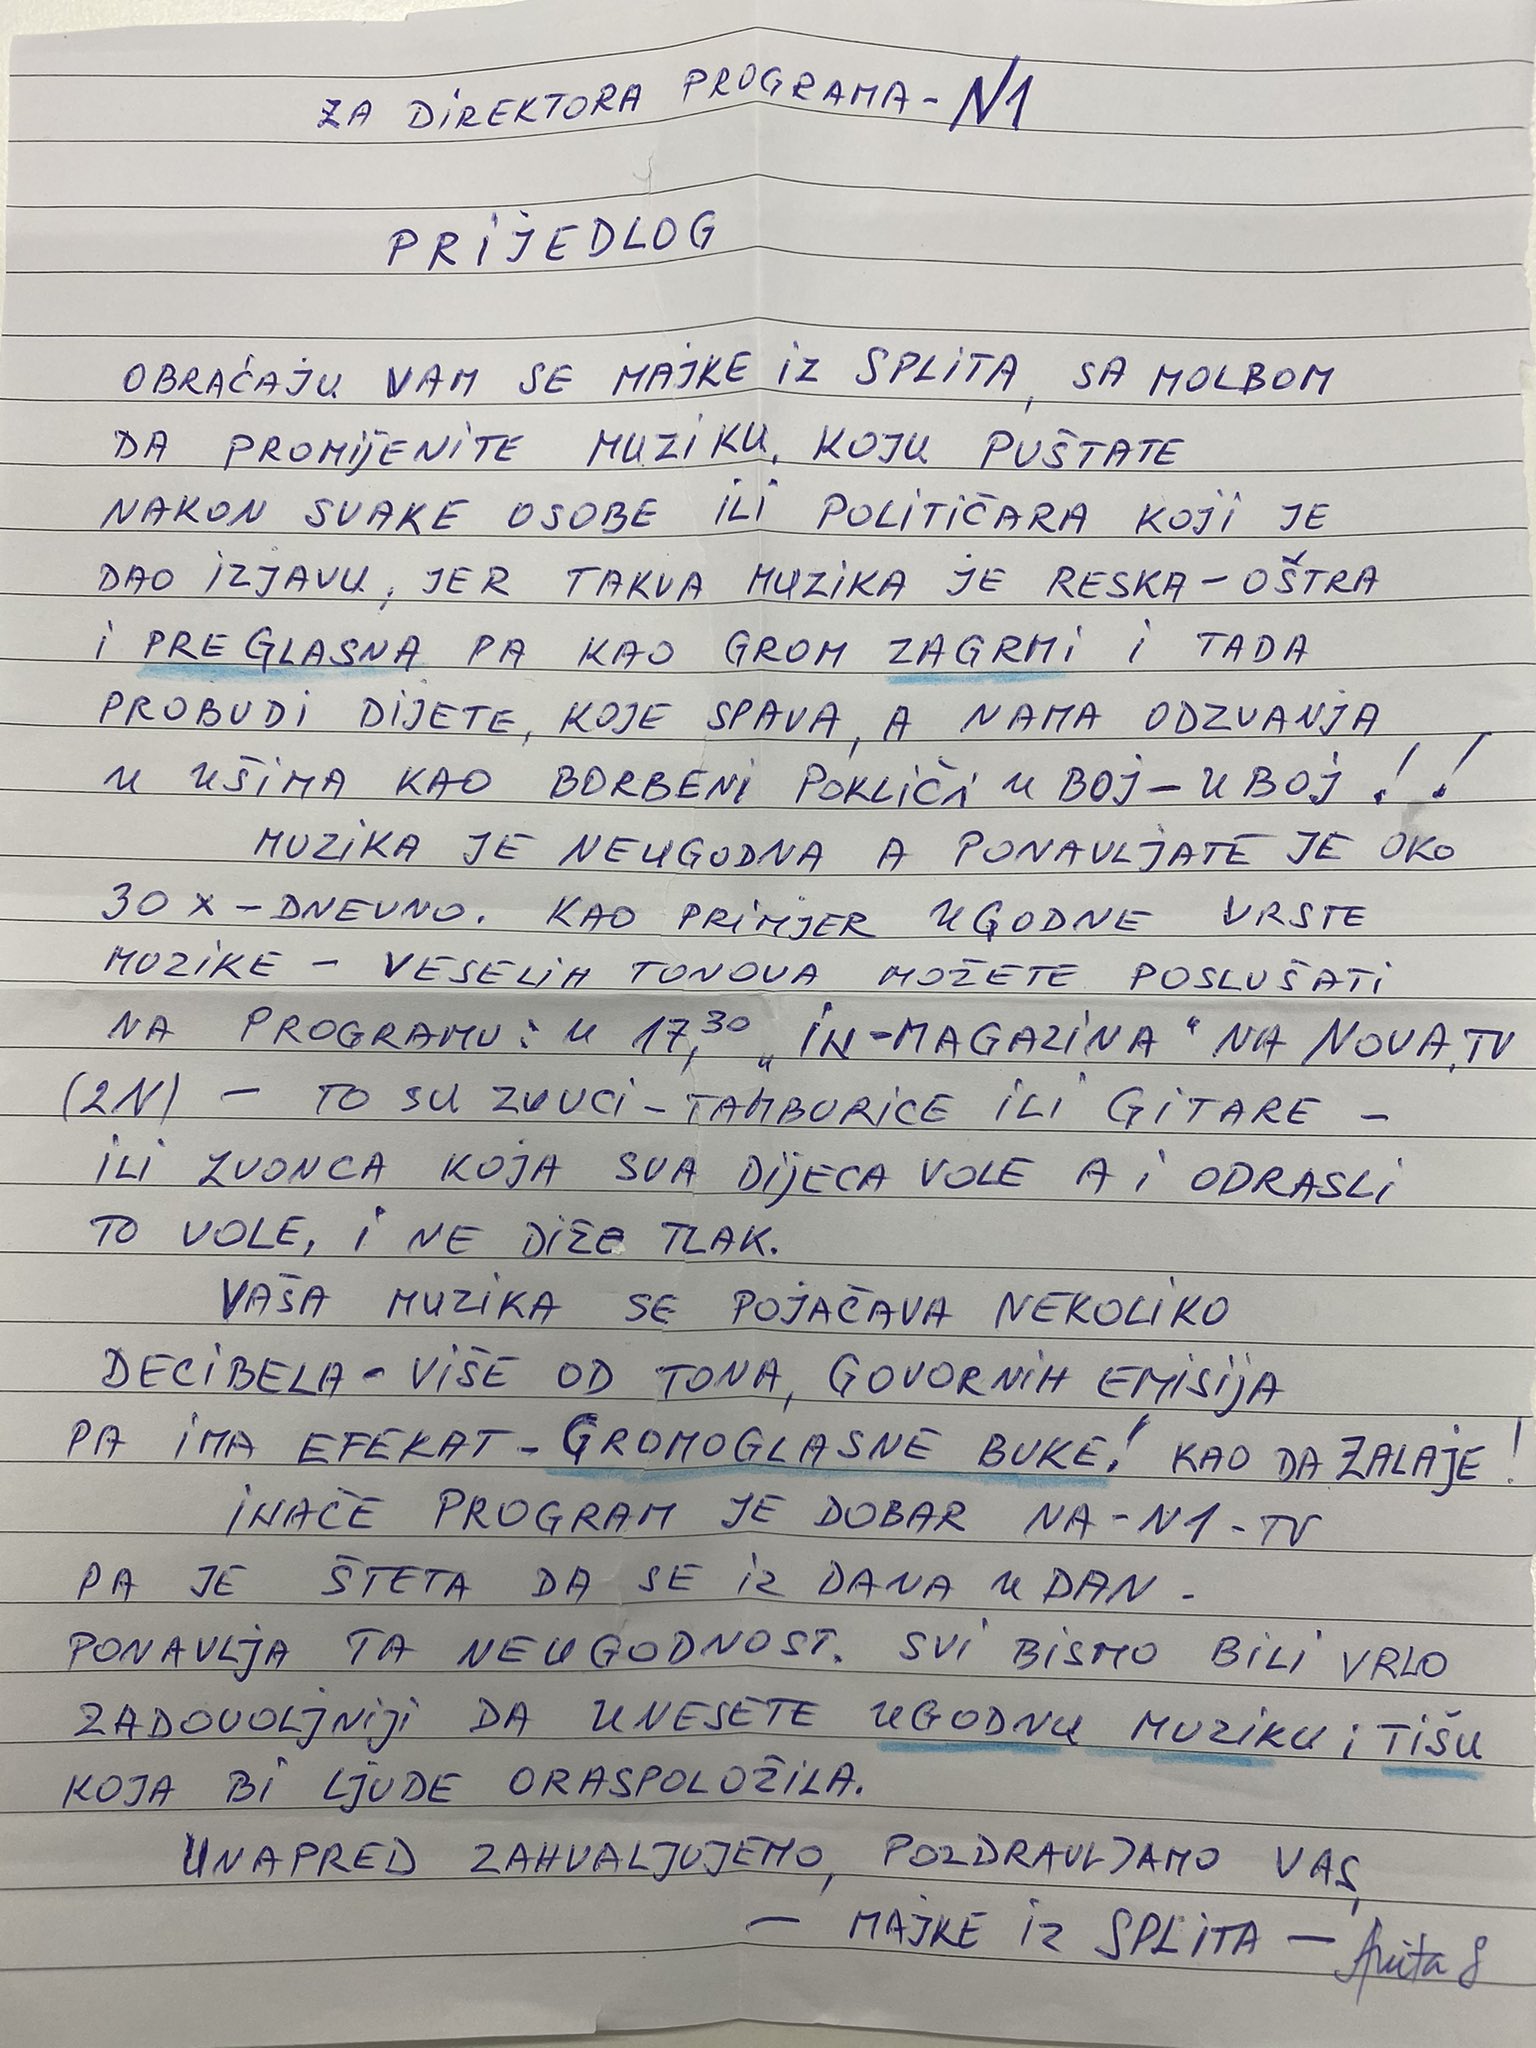 ZA DIREKTORA PROGRAMA - N1
PRIJEDLOG
OBRAĆAJU VAM SE MAJKE IZ SPLITA, SA MOLBOM
DA PROMIJENITE MUZIKU, KOJU PUŠTATE
NAKON SVAKE OSOBE ILI POLITIČARA KOJI JE
DAO IZJAVU, JER TAKVA MUZIKA JE RESKA - OŠTRA
I PREGLASNA PA KAO GROM ZAGRMI I TADA
PROBUDI DIJETE, KOJE SPAVA, A NAMA ODZVANJA
U UŠIMA KAO BORBENI POKLIČI U BOJ - U BOJ!!
MUZIKA JE NEUGODNA A PONAVLJATE JE OKO
30 X - DNEVNO. KAO PRIMJER UGODNE VRSTE
MUZIKE - VESELIH TONOVA MOŽETE POSLUŠATI
NA PROGRAMU: U 17,30 „IN-MAGAZINA" NA NOVA, TV
(2N) - TO SU ZVUCI - TAMBURICE ILI GITARE -
ILI ZVONCA KOJA SVA DIJECA VOLE A I ODRASLI
TO VOLE, I NE DIŽE TLAK.
VAŠA MUZIKA SE POJAČAVA NEKOLIKO
DECIBELA - VIŠE OD TONA, GOVORNIH EMISIJA
PA IMA EFEKAT - GROMOGLASNE BUKE! KAO DA ZALAJE!
INAČE PROGRAM JE DOBAR NA - N1 - TV
PA JE ŠTETA DA SE IZ DANA U DAN -
PONAVLJA TA NEUGODNOST. SVI BISMO BILI VRLO
ZADOVOLJNIJI DA UNESETE UGODNU MUZIKU I TIŠU
KOJA BI LJUDE ORASPOLOŽILA.
UNAPRED ZAHVALJUJEMO, POZDRAVLJAMO VAS,
- MAJKE IZ SPLITA - Anita S